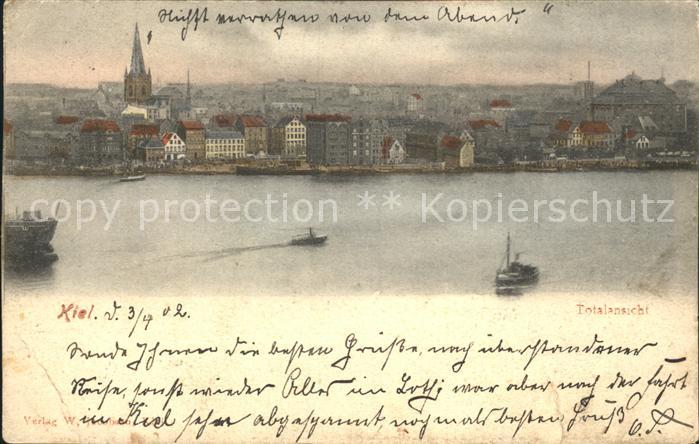 „Nichts verrathen von dem Abend."
copy protection ** Kopierschutz
Kiel. d. 3/4 02.
Totalansicht
Sende Ihnen die besten Grüße, nach überstandener
Reise, sonst wieder Alles im Loth; war aber nach der Fahrt
in Kiel sehr abgespannt, nochmals besten Gruß
Verlag W.